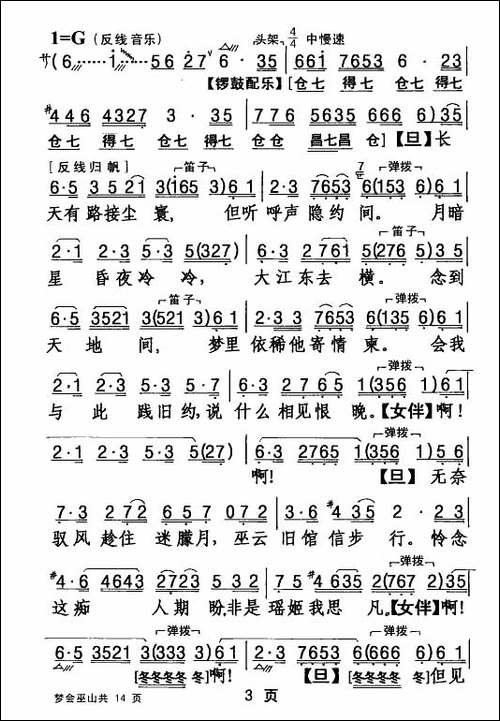 1=G（反线音乐） 头架 4/4 中慢速
サ（6····· i····· 56 27 6 · 35 | 661 7653 6 · 23
【锣鼓配乐】[仓七 得七 仓七 得七
#446 4327 3 · 35 | 776 5635 666 6）35
仓七 得七 仓七 得七 仓仓 昌七昌 仓]【旦】长
[反线归帆] 笛子 7 弹拨
6·5 3521 3(165 3)61 | 2·3 7653 6(153 6)61
天有路接尘寰， 但听呼声隐约间。 月暗
笛子
2·1 2·3 5·3 5(327) | 6·3 2761 5(276 5)35
星昏夜冷冷， 大江东去横。 念到
笛子 弹拨
6·5 3521 3(521 3)61 | 2·33 7653 6(135 6)61
天地间， 梦里依稀他寄情柬。 会我
弹拨
2·1 2·3 5·3 5·7 | 6·3 2765 1(356 1)61
与此践旧约，说什么相见恨晚。【女伴】啊！
弹拨
2·1 2·3 5·3 5(27) | 6·3 2765 1(356 1)56
啊！ 【旦】无奈
7·3 272 657 072 | 3·56 #435 2 · 23
驭风趁住迷朦月，巫云旧馆信步行。怜念
弹拨
#4·6 4643 2723 2·3 | 75 #4635 2(767 2)35
这痴人期盼，非是瑶姬我思凡。【女伴】啊！
弹拨 弹拨
6·5 3521 3(333 3)61 | 5·5 3523 5(555 5)61
[冬冬冬冬 冬]啊！ 【旦】[冬冬冬冬 冬]但见
梦会巫山共 14 页 3 页